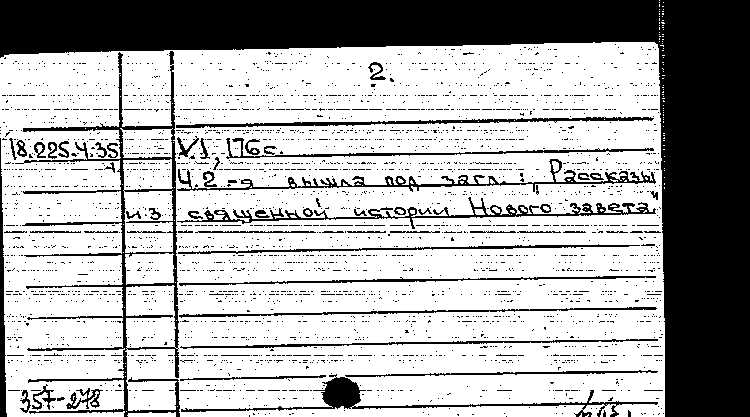 2.
18.225.4.35 VI, 176 с.
Ч.2-я вышла под загл.: „Рассказы
из священной истории Нового завета"
357-278